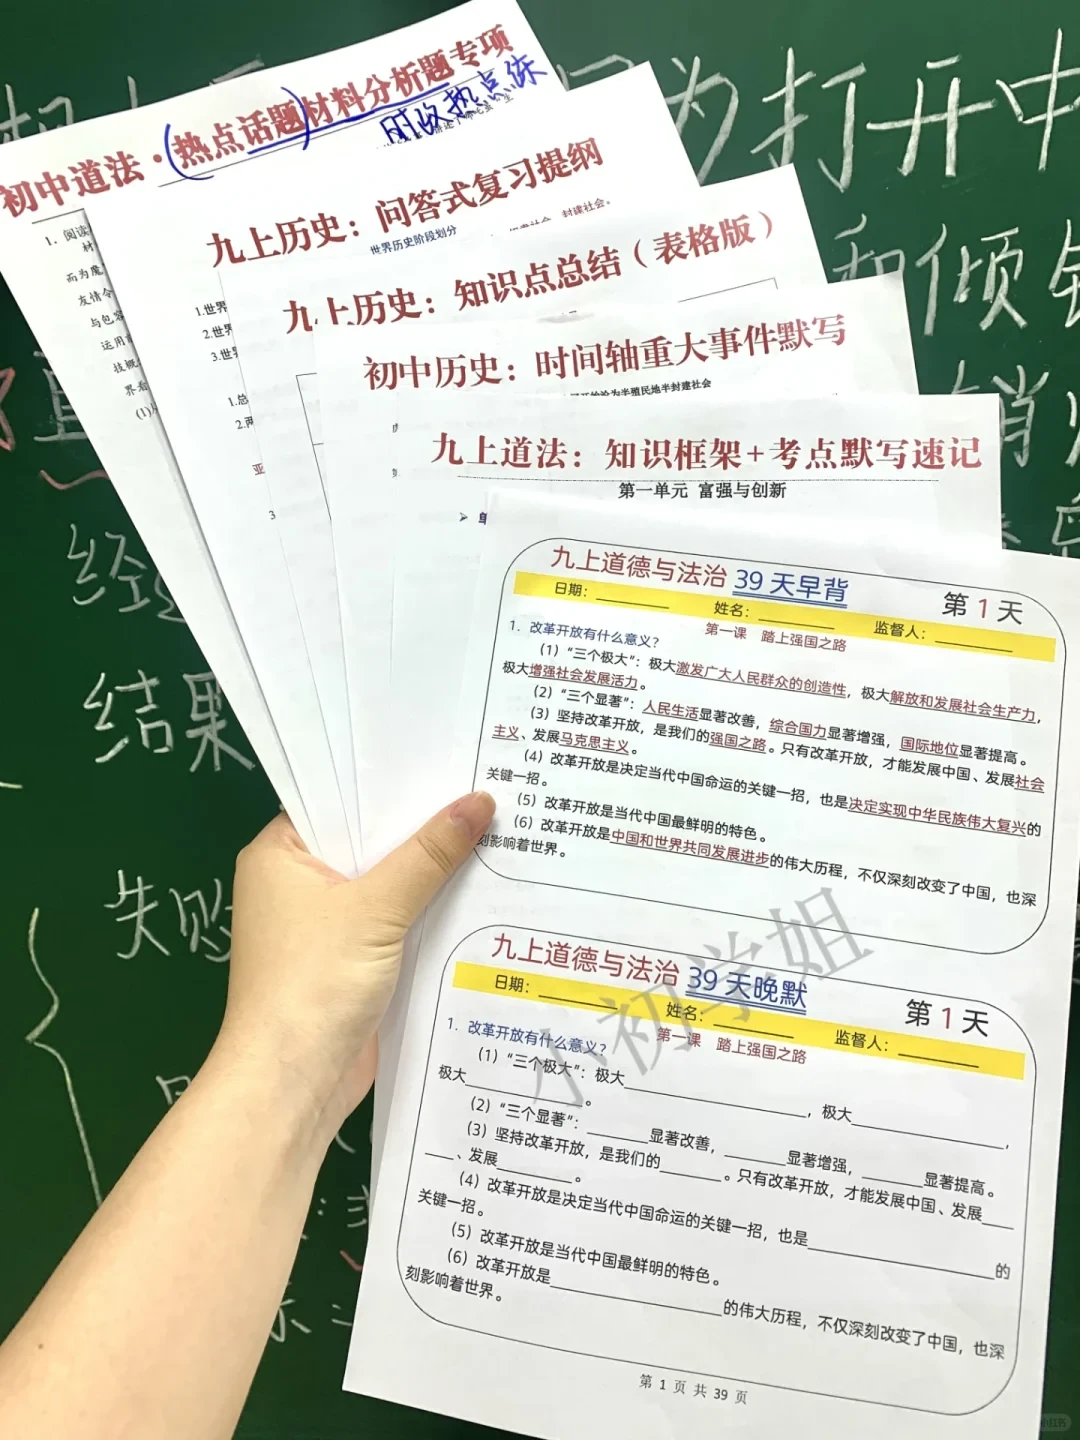 初中道法·(热点话题)材料分析题专项
时政热点练
九上历史：问答式复习提纲
世界历史阶段划分
封建社会。
1.世界
2.世界
3.世界
九上历史：知识点总结（表格版）
1.总
2.两
亚
3
初中历史：时间轴重大事件默写
开始沦为半殖民地半封建社会
九上道法：知识框架+考点默写速记
第一单元 富强与创新
1. 阅读
材
而为魔
友情令
与包容
运用
技概
界看
(1)
九上道德与法治 39 天早背
第 1 天
日期：________ 姓名：________ 监督人：________
第一课 踏上强国之路
1. 改革开放有什么意义？
（1）“三个极大”：极大激发广大人民群众的创造性，极大解放和发展社会生产力，
极大增强社会发展活力。
（2）“三个显著”：人民生活显著改善，综合国力显著增强，国际地位显著提高。
（3）坚持改革开放，是我们的强国之路。只有改革开放，才能发展中国、发展社会
主义、发展马克思主义。
（4）改革开放是决定当代中国命运的关键一招，也是决定实现中华民族伟大复兴的
关键一招。
（5）改革开放是当代中国最鲜明的特色。
（6）改革开放是中国和世界共同发展进步的伟大历程，不仅深刻改变了中国，也深
刻影响着世界。
九上道德与法治 39 天晚默
第 1 天
日期：________ 姓名：________ 监督人：________
第一课 踏上强国之路
1. 改革开放有什么意义？
（1）“三个极大”：极大________，极大________，
极大________。
（2）“三个显著”：________显著改善，________显著增强，________显著提高。
（3）坚持改革开放，是我们的________。只有改革开放，才能发展中国、发展____
____、发展________。
（4）改革开放是决定当代中国命运的关键一招，也是________的
关键一招。
（5）改革开放是当代中国最鲜明的特色。
（6）改革开放是________的伟大历程，不仅深刻改变了中国，也深
刻影响着世界。
第 1 页 共 39 页
小初学姐
为打开中
和倾销
直
经
结果
失败